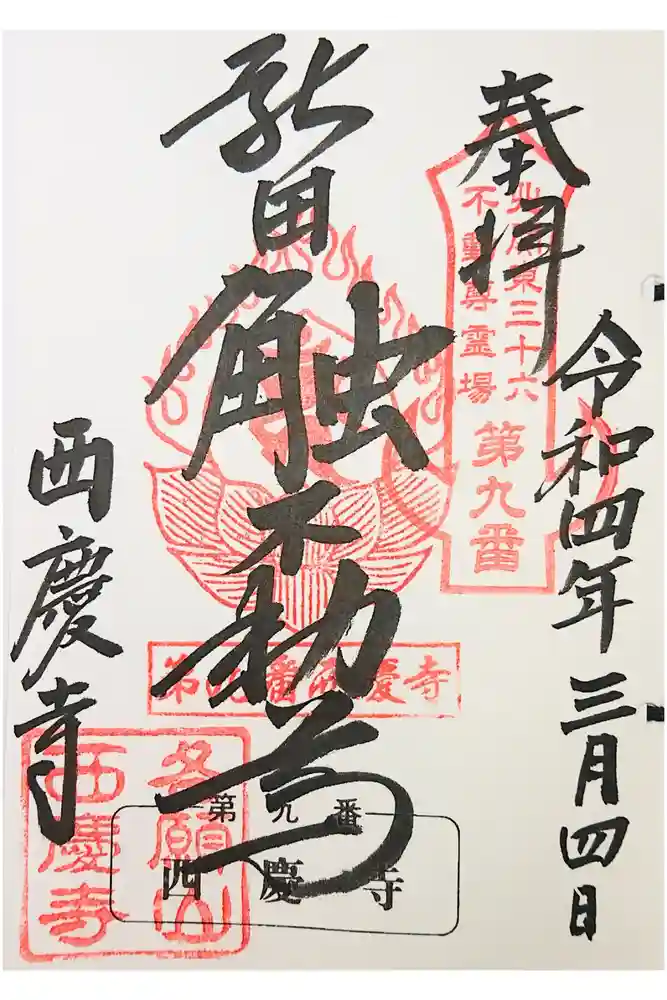 奉拝
北関東三十六
不動尊霊場
第九番
令和四年三月四日
新田触不動尊
第九番西慶寺
第九番
西慶寺
西慶寺
西慶寺